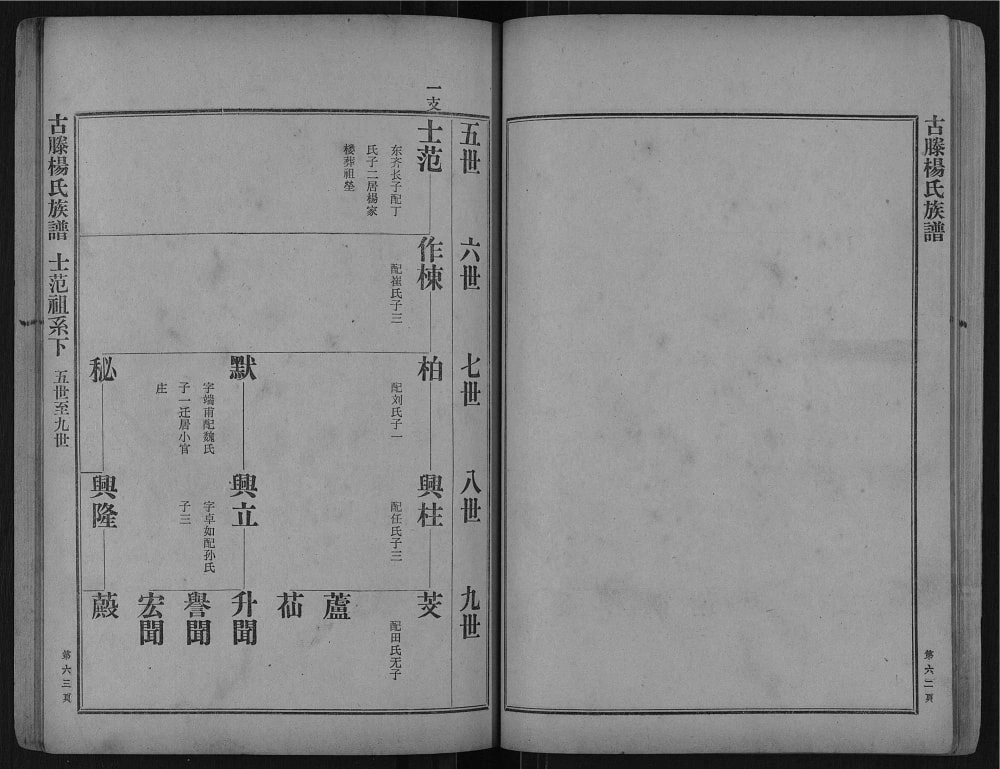 古滕楊氏族譜
第六二頁
一支
五世
六世
七世
八世
九世
士范
东齐长子配丁
氏子二居楊家
楼葬祖塋
作棟
配崔氏子三
柏
配刘氏子一
默
字端甫配魏氏
子一迁居小官
庄
秘
興柱
配任氏子三
興立
字卓如配孙氏
子三
興隆
芰
配田氏无子
蘆
茄
升聞
譽聞
宏聞
古滕楊氏族譜
士范祖系下
五世至九世
第六三頁